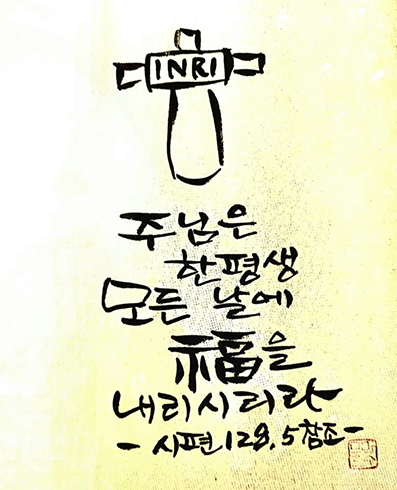 INRI
주님은
한평생
모든 날에
福을
내리시리라
- 시편 128, 5 참조 -